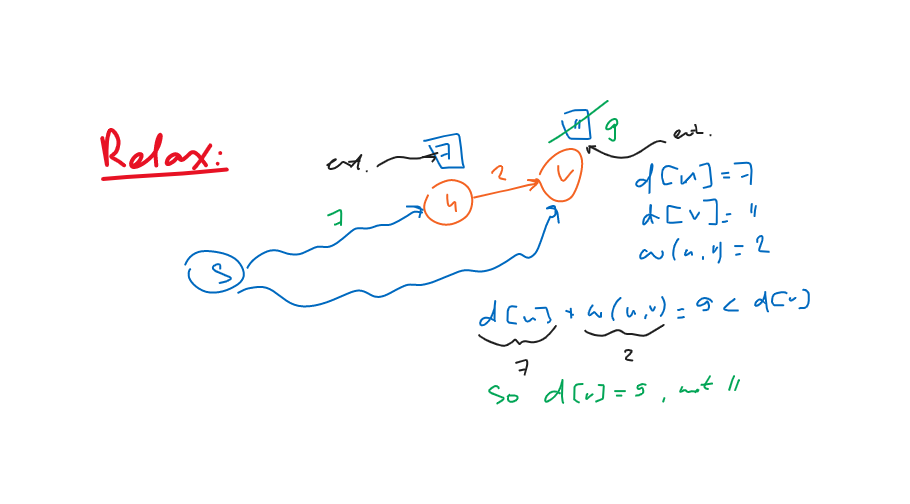 Relax:
est.
7
11
9
est.
2
u
v
7
S
d[u] = 7
d[v] = 11
w(u,v) = 2
d[u] + w(u,v) = 9 < d[v]
7
2
So d[v] = 9, not 11